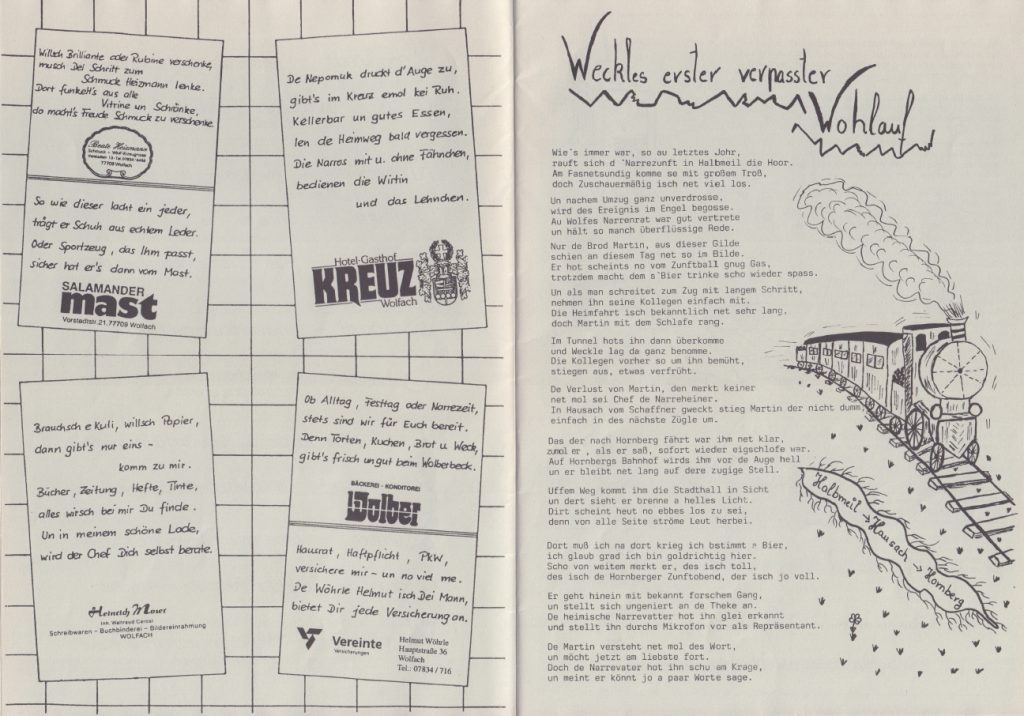 Willsch Brilliante oder Rubine verschenke,
musch Dei Schritt zum
Schmuck Heizmann lenke.
Dort funkelt's aus alle
Vitrine un Schränke,
do macht's Freude Schmuck zu verschenke.
Beate Heizmann
77709 Wolfach
So wie dieser lacht ein jeder,
trägt er Schuh aus echtem Leder.
Oder Sportzeug, das Ihm passt,
sicher hat er's dann vom Mast.
SALAMANDER
mast
Vorstadtstr. 21, 77709 Wolfach
De Nepomuk druckt d'Auge zu,
gibt's im Kreuz emol kei Ruh.
Kellerbar un gutes Essen,
len de Heimweg bald vergessen.
Die Narros mit u. ohne Fähnchen,
bedienen die Wirtin
und das Lehnchen.
Hotel-Gasthof
KREUZ
Wolfach
Brauchsch e Kuli, willsch Papier,
dann gibt's nur eins -
komm zu mir.
Bücher, Zeitung, Hefte, Tinte,
alles wirsch bei mir Du finde.
Un in meinem schöne Lade,
wird der Chef Dich selbst berate.
Heinrich Moser
Inh. Waltraud Cantal
Schreibwaren - Buchbinderei - Bildereinrahmung
WOLFACH
Ob Alltag, Festtag oder Narrezeit,
stets sind wir für Euch bereit.
Denn Torten, Kuchen, Brot u. Weck,
gibt's frisch un gut beim Wolberbeck.
BÄCKEREI - KONDITOREI
Wolber
Hausrat, Haftpflicht, PKW,
versichere mir - un no viel me.
De Wöhrle Helmut isch Dei Mann,
bietet Dir jede Versicherung an.
Vereinte
Versicherungen
Helmut Wöhrle
Hauptstraße 36
Wolfach
Tel.: 07834 / 716
Weckles erster verpasster
Wohlauf
Wie's immer war, so au letztes Johr,
rauft sich d 'Narrezunft in Halbmeil die Hoor.
Am Fasnetsundig komme se mit großem Troß,
doch Zuschauermäßig isch net viel los.
Un nachem Umzug ganz unverdrosse,
wird des Ereignis im Engel begosse.
Au Wolfes Narrenrat war gut vertrete
un hält so manch überflüssige Rede.
Nur de Brod Martin, aus dieser Gilde
schien an diesem Tag net so im Bilde.
Er hot scheints no vom Zunftball gnug Gas,
trotzdem macht dem s'Bier trinke scho wieder spass.
Un als man schreitet zum Zug mit langem Schritt,
nehmen ihn seine Kollegen einfach mit.
Die Heimfahrt isch bekanntlich net sehr lang,
doch Martin mit dem Schlafe rang.
Im Tunnel hots ihn dann überkomme
und Weckle lag da ganz benomme.
Die Kollegen vorher so um ihn bemüht,
stiegen aus, etwas verfrüht.
De Verlust von Martin, den merkt keiner
net mol sei Chef de Narreheiner.
In Hausach vom Schaffner gweckt stieg Martin der nicht dumm,
einfach in des nächste Zügle um.
Das der nach Hornberg fährt war ihm net klar,
zumol er , als er saß, sofort wieder eigschlofe war.
Auf Hornbergs Bahnhof wirds ihm vor de Auge hell
un er bleibt net lang auf dere zugige Stell.
Uffem Weg kommt ihm die Stadthall in Sicht
un dert sieht er brenne a helles Licht.
Dirt scheint heut no ebbes los zu sei,
denn von alle Seite ströme Leut herbei.
Dort muß ich na dort krieg ich bstimmt a Bier,
ich glaub grad ich bin goldrichtig hier.
Scho von weitem merkt er, des isch toll,
des isch de Hornberger Zunftobend, der isch jo voll.
Er geht hinein mit bekannt forschem Gang,
un stellt sich ungeniert an de Theke an.
De heimische Narrevatter hot ihn glei erkannt
und stellt ihn durchs Mikrofon vor als Repräsentant.
De Martin versteht net mol des Wort,
un möcht jetzt am liebste fort.
Doch de Narrevater hot ihn schu am Krage,
un meint er könnt jo a paar Worte sage.
Halbmeil → Hausach → Hornberg